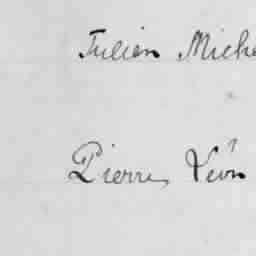 Julien Miche
Pierre Léon